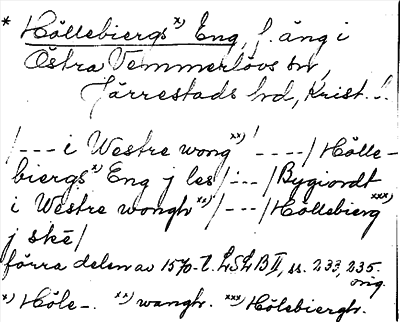 * Höllebiergs x) Eng, f. äng i
Östra Vemmerlövs sn,
Järrestads hd, Krist. l.
/--- i Westre wong xx) ' ----/ Hölle-
biergs x) Eng j les /---/ Bygiordt
i Westre wongh xx) /---/ Höllebierg xxx)
j skė/
förra delen av 1570-t. LSLB II, ss. 233, 235.
orig.
x) Höle-. xx) wanghr. xxx) Hölebierghr.